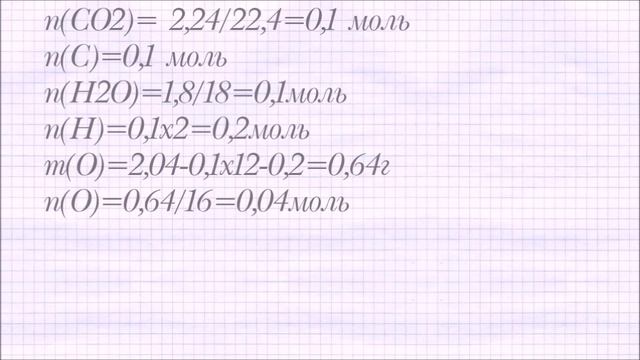 n(CO2)= 2,24/22,4=0,1 моль
n(C)=0,1 моль
n(H2O)=1,8/18=0,1моль
n(H)=0,1x2=0,2моль
m(O)=2,04-0,1x12-0,2=0,64г
n(O)=0,64/16=0,04моль